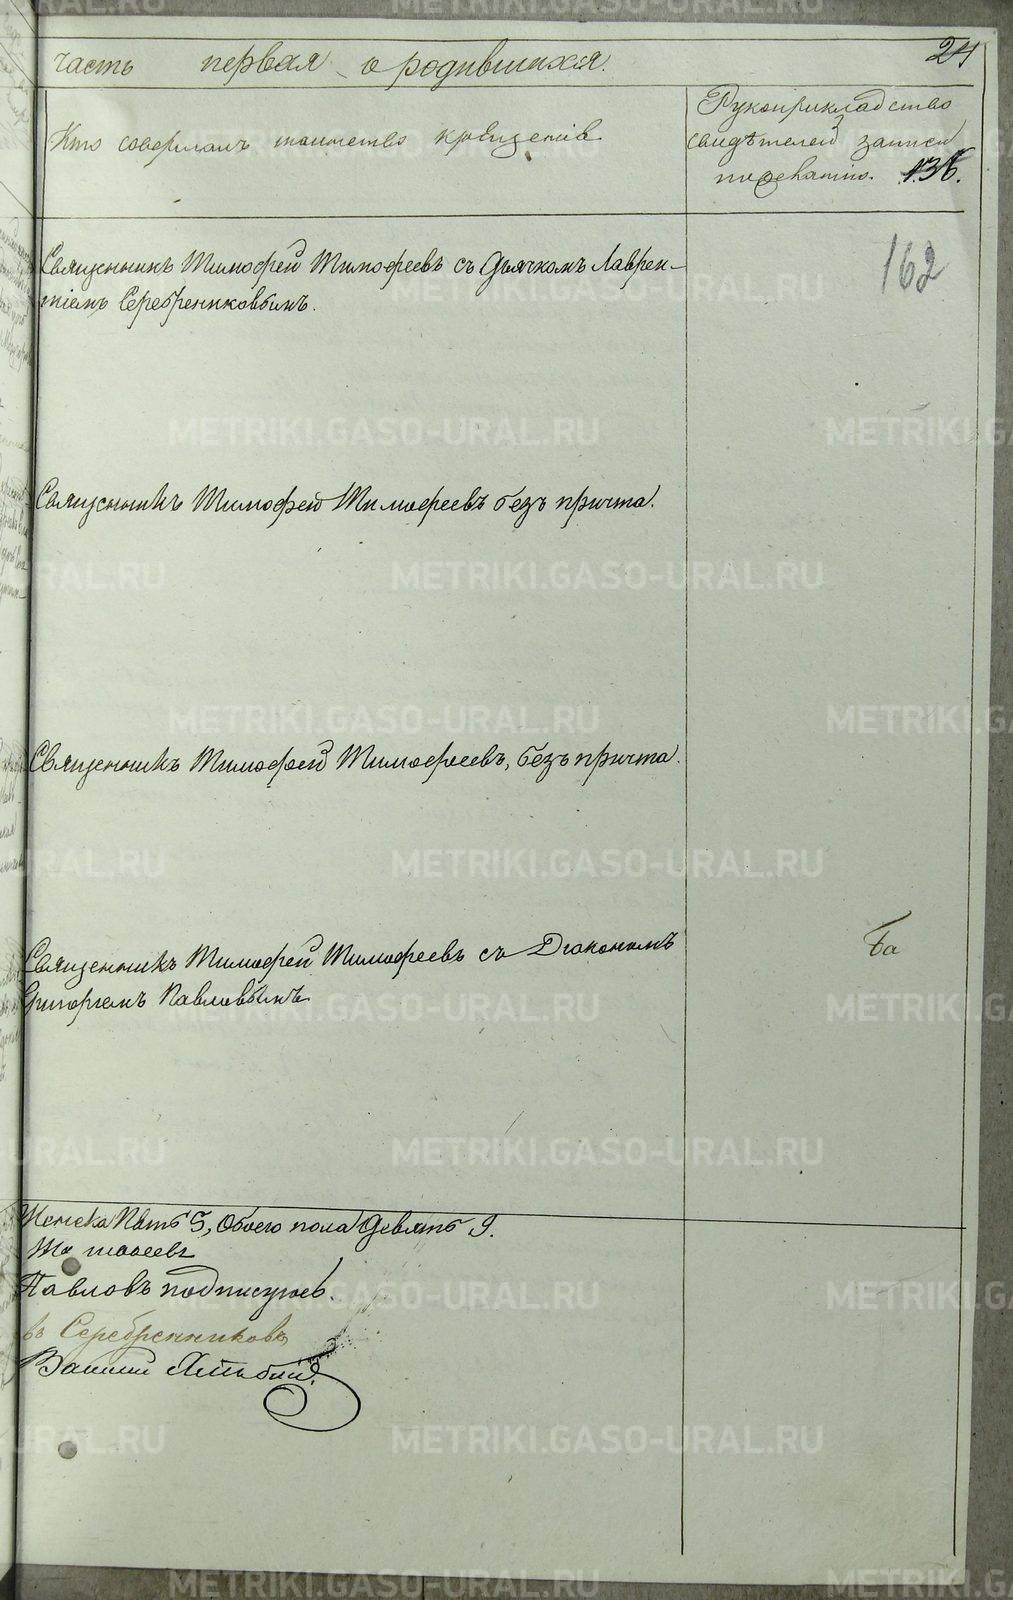 часть первая о родившихся.
24
Кто совершалъ таинство крещенія
Рукоприкладство
свидѣтелей записи
по желанію. 136.
162
Священникъ Тимофей Тимофеевъ съ Дьячкомъ Лаврен-
тіемъ Серебренниковымъ.
Священникъ Тимофей Тимофеевъ безъ причта.
Священникъ Тимофей Тимофеевъ, безъ причта.
Священникъ Тимофей Тимофеевъ съ Діакономъ
Григоріемъ Павловымъ
Женска Пять 5, Обоего пола Девять 9.
Тимофеевъ
Павловъ подписуюсь.
Серебренниковъ
METRIKI.GASO-URAL.RU